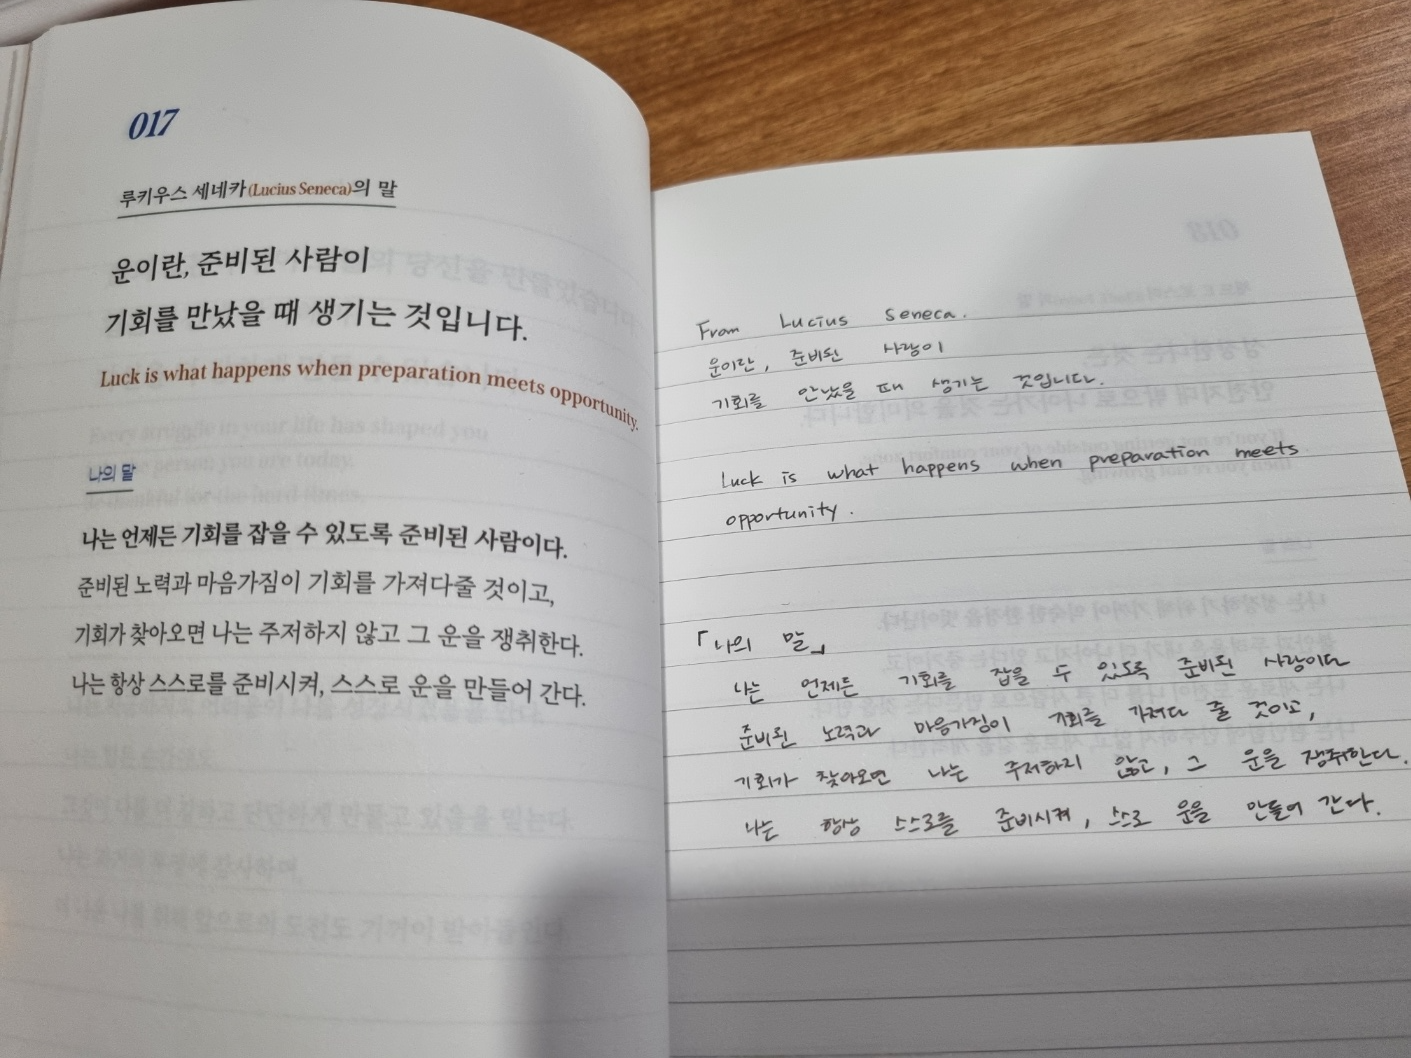 017
루키우스 세네카(Lucius Seneca)의 말
운이란, 준비된 사람이
기회를 만났을 때 생기는 것입니다.
Luck is what happens when preparation meets opportunity.
나의 말
나는 언제든 기회를 잡을 수 있도록 준비된 사람이다.
준비된 노력과 마음가짐이 기회를 가져다줄 것이고,
기회가 찾아오면 나는 주저하지 않고 그 운을 쟁취한다.
나는 항상 스스로를 준비시켜, 스스로 운을 만들어 간다.
From Lucius Seneca.
운이란, 준비된 사람이
기회를 만났을 때 생기는 것입니다.
Luck is what happens when preparation meets
opportunity.
「나의 말」
나는 언제든 기회를 잡을 수 있도록 준비된 사람이다
준비된 노력과 마음가짐이 기회를 가져다 줄 것이고,
기회가 찾아오면 나는 주저하지 않고, 그 운을 쟁취한다.
나는 항상 스스로를 준비시켜, 스스로 운을 만들어 간다.